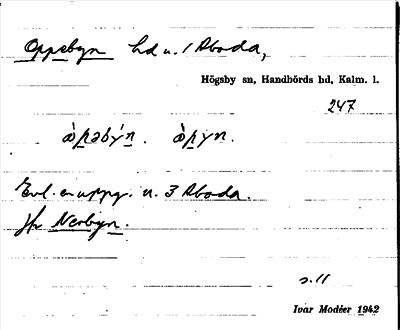 Oppebyn hd u. 1 Aboda,
Högsby sn, Handbörds hd, Kalm. l.
247
ὰpəbýn. ὰpyn.
Enl. en uppg. u. 3 Aboda.
Jfr Nerbyn.
s. 11
Ivar Modéer 1942